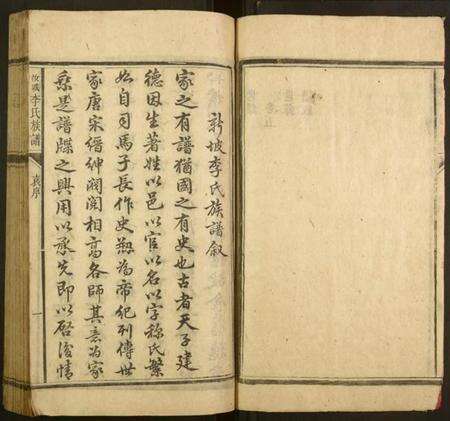 新坡李氏族譜敘
家之有譜猶國之有史也古者天子建
德因生著姓以邑以官以名以字稱氏繁
始自司馬子長作史別為帝紀列傳世
家唐宋縉紳濶閱相高各師其意為家
乘是譜牒之興用以承先即以啓後情
李氏族譜
敘
一